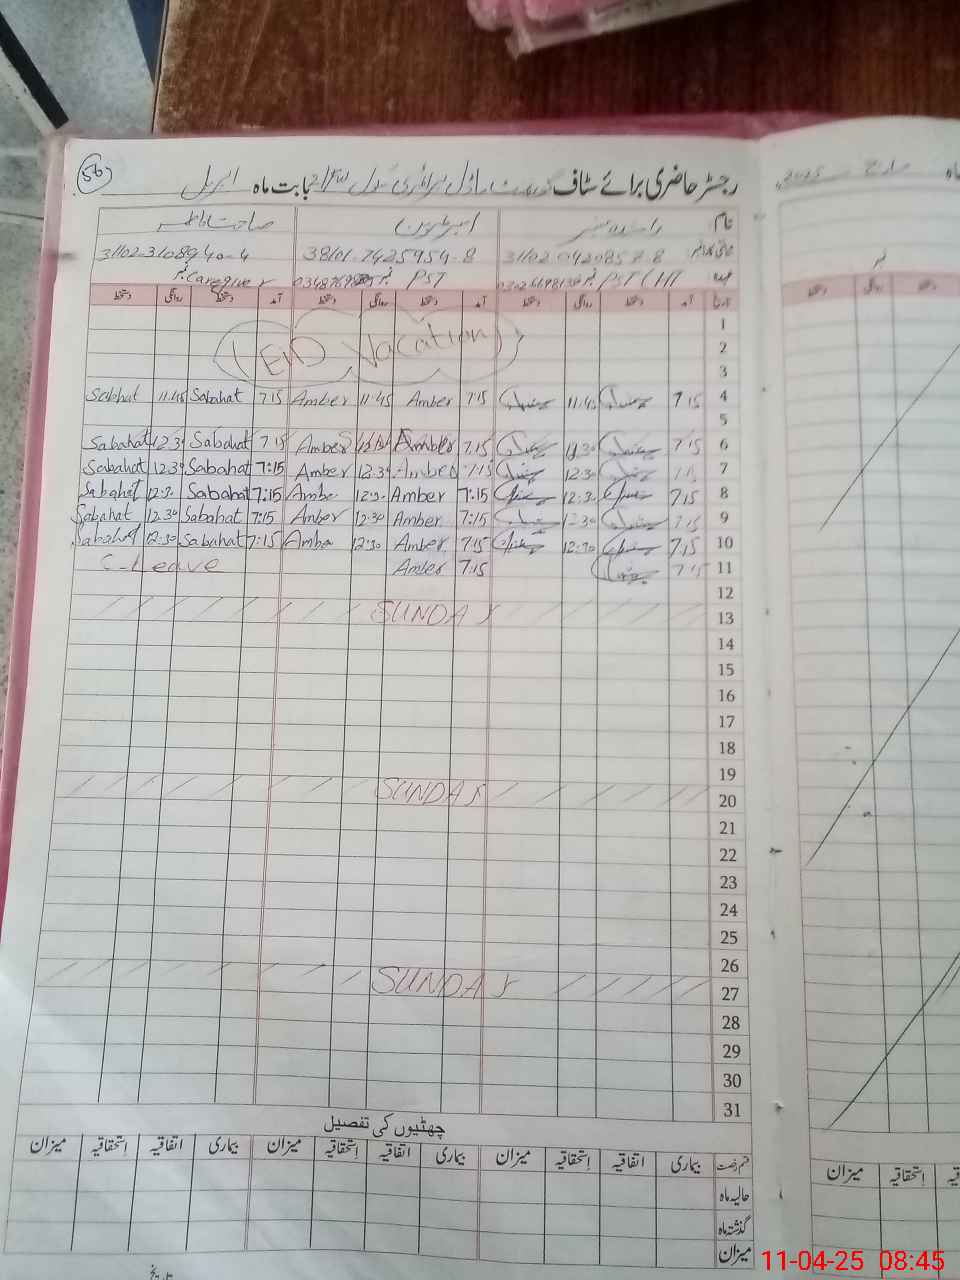 56
رجسٹر حاضری برائے سٹاف گورنمنٹ ماڈل پرائمری سکول بابت ماہ اپریل
نام
31102-3108940-4 38101-7425954-8 31102-0420857-8
عہدہ PST (HT PST Caregiver
تاریخ آمد دستخط روانگی دستخط آمد دستخط روانگی دستخط آمد دستخط روانگی دستخط
1
2
(EID Vacation)
3
Sabahat 11:45 Sabahat 7:15 Amber 11:45 Amber 7:15 11:45 7:15 4
5
Sabahat 12:30 Sabahat 7:15 Amber Amber 7:15 7:15 6
Sabahat 12:30 Sabahat 7:15 Amber 12:30 Amber 7:15 12:30 7
Sabahat 12:30 Sabahat 7:15 Amber 12:30 Amber 7:15 12:30 7:15 8
Sabahat 12:30 Sabahat 7:15 Amber 12:30 Amber 7:15 12:30 7:15 9
Sabahat 12:30 Sabahat 7:15 Amber 12:30 Amber 7:15 12:30 7:15 10
C-Leave Amber 7:15 7:15 11
12
SUNDAY 13
14
15
16
17
18
19
SUNDAY 20
21
22
23
24
25
26
SUNDAY 27
28
29
30
31
چھٹیوں کی تفصیل
قسم رخصت بیماری اتفاقیہ استحقاقیہ میزان بیماری اتفاقیہ استحقاقیہ میزان بیماری اتفاقیہ استحقاقیہ میزان
حالیہ ماہ
گذشتہ ماہ
میزان
تاریخ
ماہ مارچ 2025
نمبر
دستخط روانگی دستخط
استحقاقیہ میزان
11-04-25 08:45